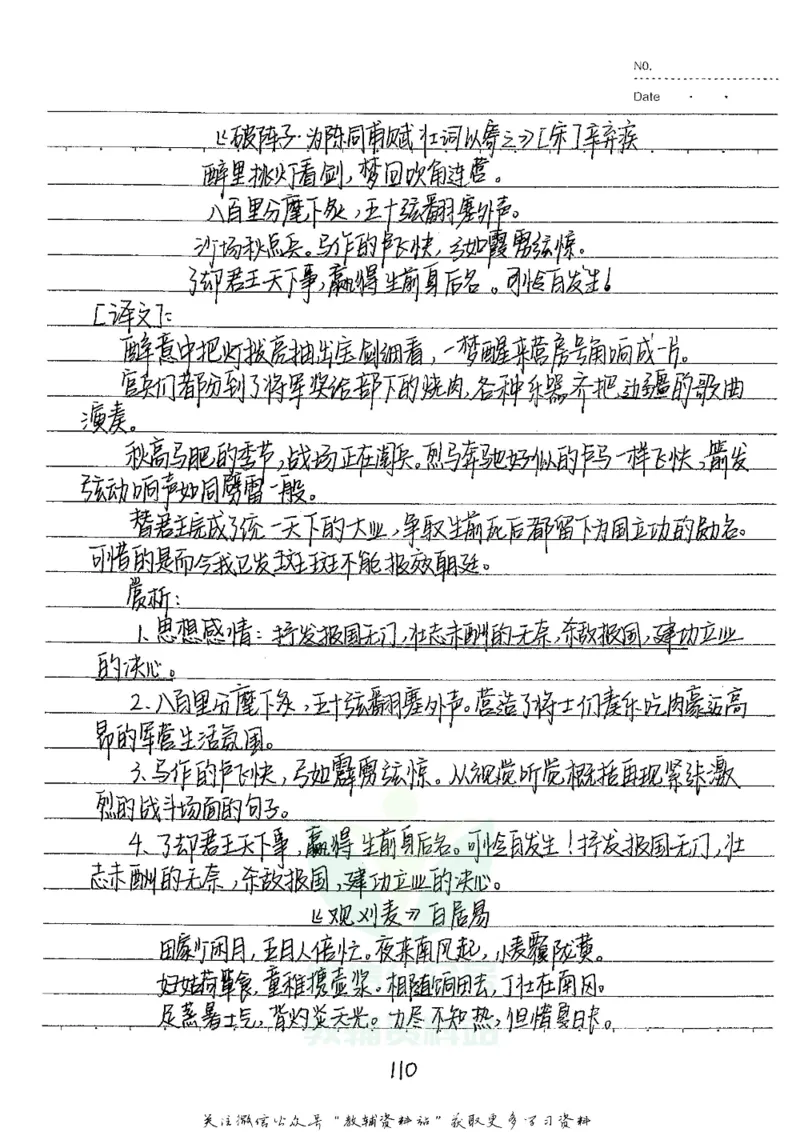 NO.
Date
《破阵子·为陈同甫赋壮词以寄之》[宋]辛弃疾
醉里挑灯看剑,梦回吹角连营。
八百里分麾下炙,五十弦翻塞外声。
沙场秋点兵。马作的卢飞快,弓如霹雳弦惊。
了却君王天下事,赢得生前身后名。可怜白发生!
[译文]:
醉意中把灯拨亮抽出宝剑细看,一梦醒来营房号角响成一片。
官兵们都分到了将军奖给部下的烧肉,各种乐器齐把边疆的歌曲
演奏。
秋高马肥的季节,战场正在阅兵。烈马奔驰好似的卢马一样飞快、箭发
弦动响声如同霹雷一般。
替君主完成了统一天下的大业,争取生前死后都留下为国立功的勋名。
可惜的是而今我已发斑斑不能报效朝廷。
赏析:
1.思想感情:抒发报国无门,壮志未酬的无奈,杀敌报国,建功立业
的决心。
2.八百里分麾下炙,五十弦翻塞外声。营造了将士们奏乐吃肉豪迈高
昂的军营生活氛围。
3.马作的卢飞快,弓如霹雳弦惊。从视觉听觉概括再现紧张激
烈的战斗场面的句子。
4.了却君王天下事,赢得生前身后名。可怜白发生!抒发报国无门,壮
志未酬的无奈,杀敌报国,建功立业的决心。
《观刈麦》白居易
田家少闲月,五月人倍忙。夜来南风起,小麦覆陇黄。
妇姑荷箪食,童稚携壶浆。相随饷田去,丁壮在南冈。
足蒸暑土气,背灼炎天光。力尽不知热,但惜夏日长。
教辅资料站
110
关注微信公众号"教辅资料站"获取更多学习资料